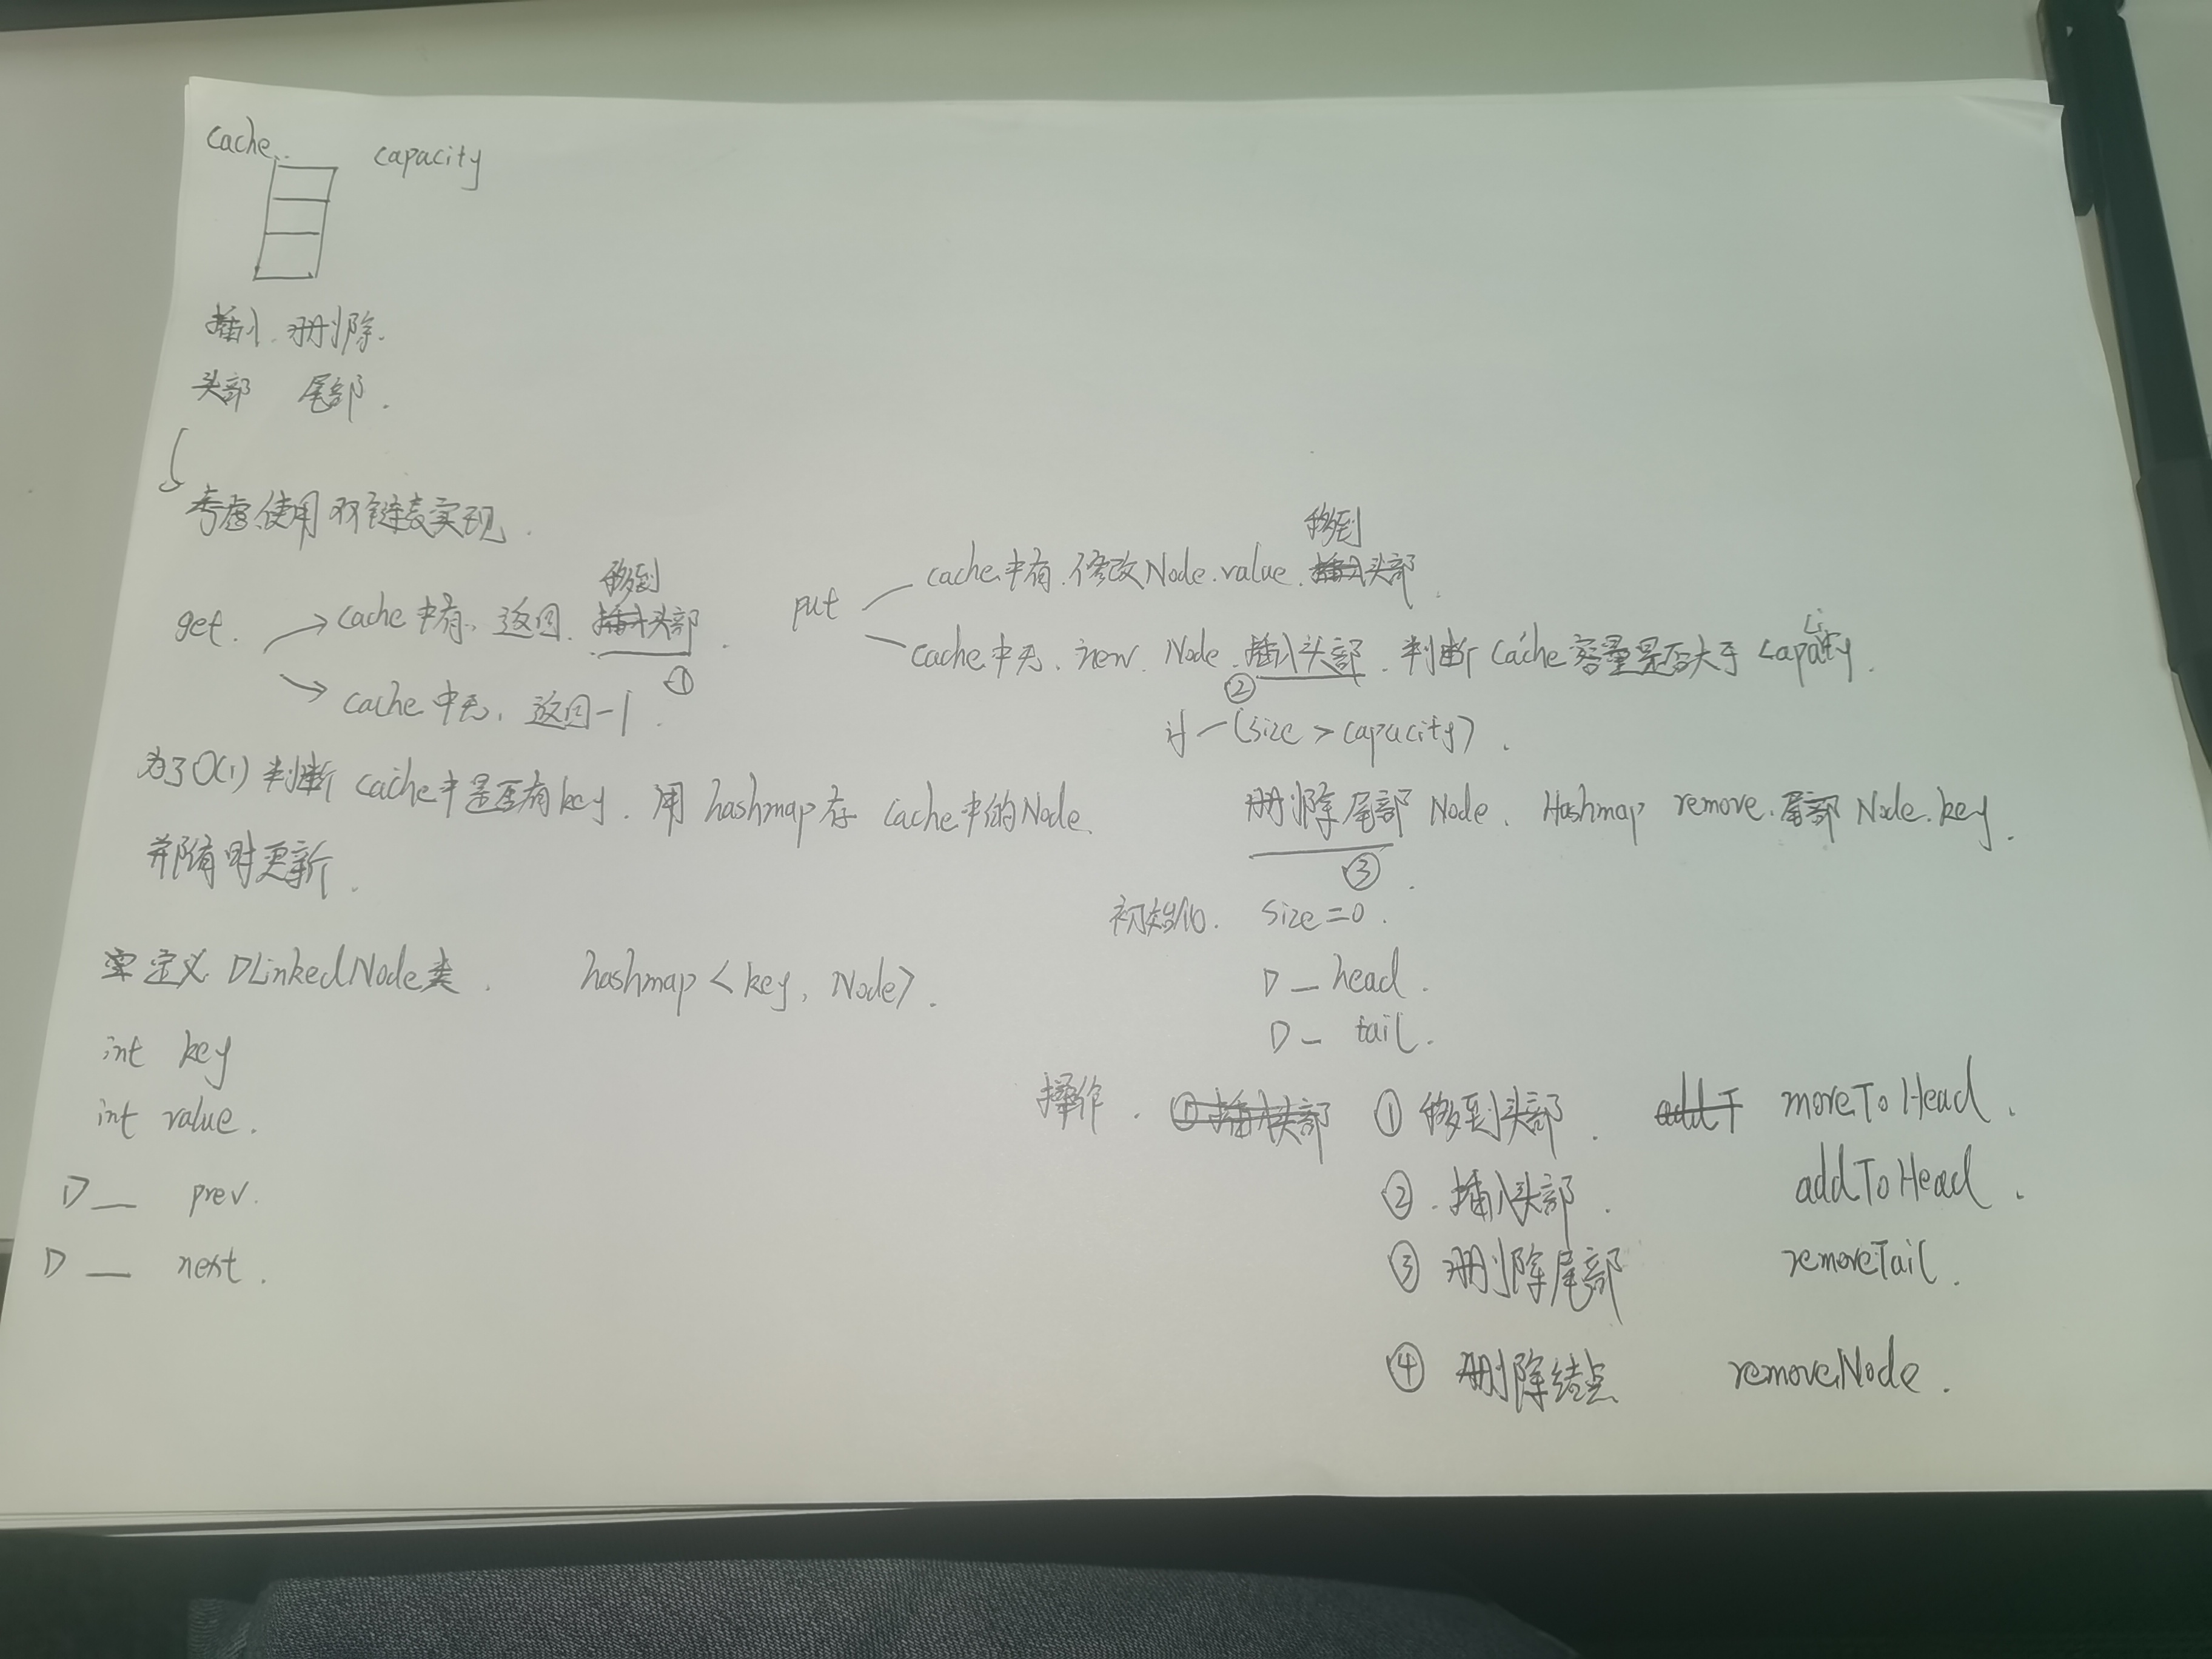 cache capacity
插入 删除.
头部 尾部.
考虑使用双链表实现.
get.
cache中有, 返回. 移到头部.
①
cache中无, 返回-1.
put
cache中有. 修改Node.value. 移到头部.
cache中无. new Node. 插入头部. 判断cache容量是否大于capacity.
②
if (size > capacity).
删除尾部 Node. Hashmap remove. 尾部 Node.key.
③
为了O(1)判断cache中是否有key. 用hashmap存cache中的Node.
并随时更新.
定义 DLinkedNode类. hashmap<key, Node>.
int key
int value.
D__ prev.
D__ next.
初始化. size=0.
D_ head.
D_ tail.
操作. ①插入头部 ①移到头部. addT moveToHead.
②. 插入头部. addToHead.
③ 删除尾部 removeTail.
④ 删除结点 removeNode.